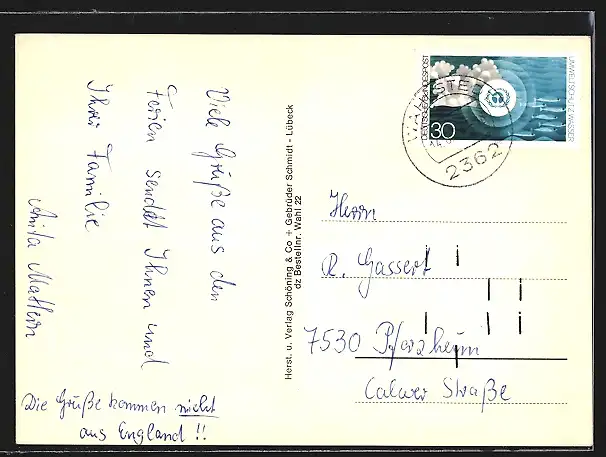 Viele Grüße aus den
Ferien sendet Ihnen und
Ihrer Familie
Anita Mattern
Die Grüße kommen nicht
aus England!!
Herst. u. Verlag Schöning & Co + Gebrüder Schmidt - Lübeck
dz Bestellnr. Wahl 22
DEUTSCHE BUNDESPOST
30
UMWELTSCHUTZ: WASSER
WAHLSTEDT
2362
Herrn
R. Gassert
7530 Pforzheim
Calwer Straße